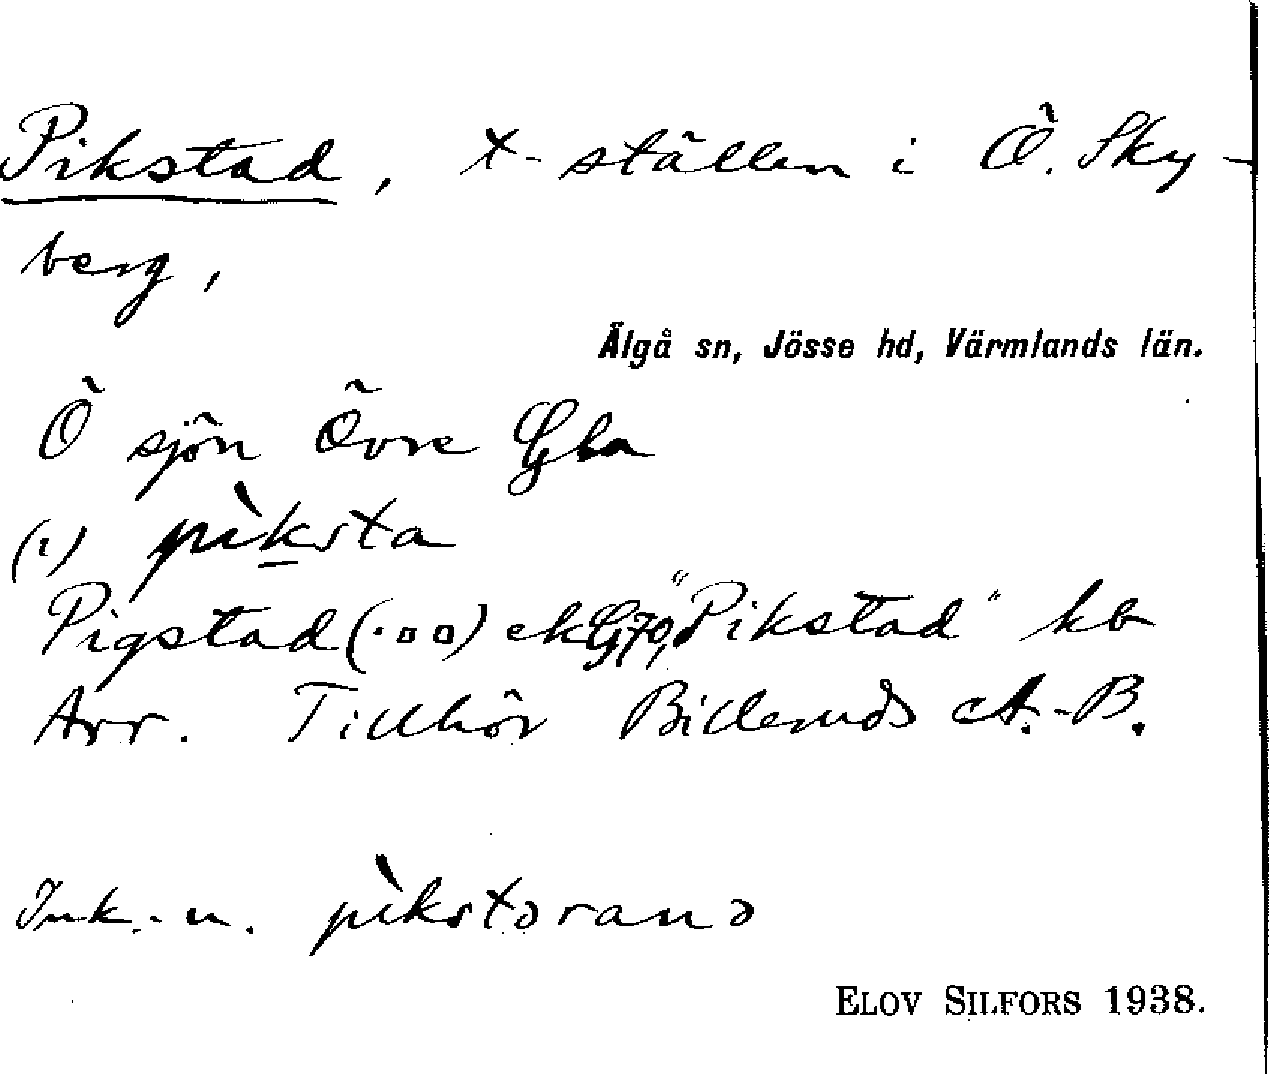 Pikstad, x-ställen i Ö. Sky-
berg,
Älgå sn, Jösse hd, Värmlands län.
Ö sjön Övre Gla
(ı) pìksta
Pigstad (·▫▫) ek G, 70, "Pikstad" kb
Arr. Tillhör Billeruds A.-B.
Ink.-n. pìkstɔranɔ
ELOV SILFORS 1938.